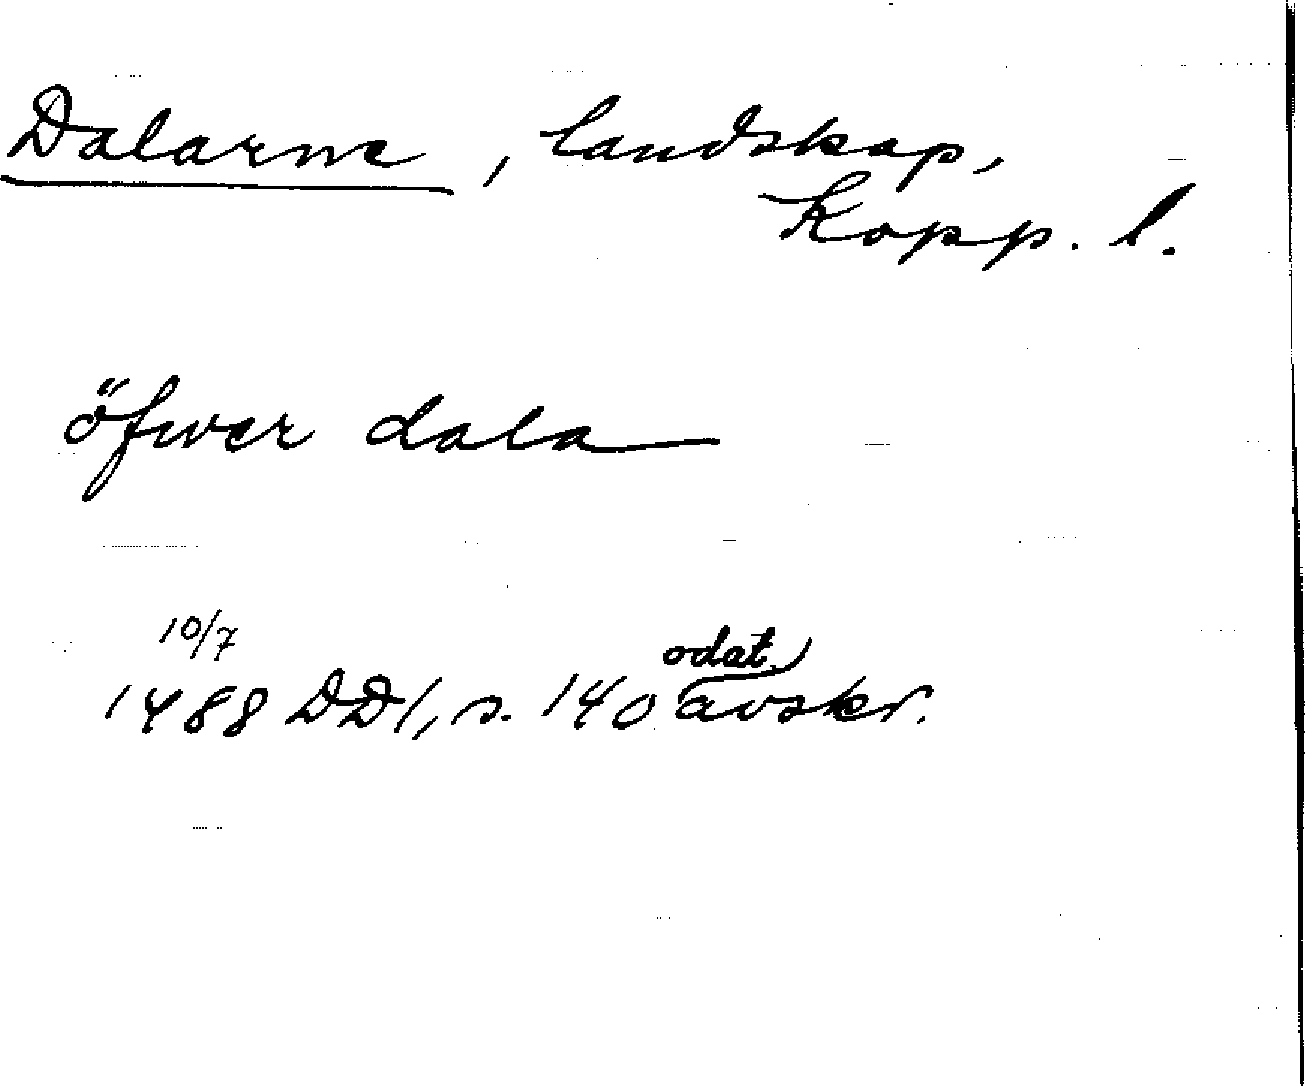 Dalarne, landskap,
Kopp. l.
öfwer dala
10/7
odat.
1488 DD1, s. 140 avskr.